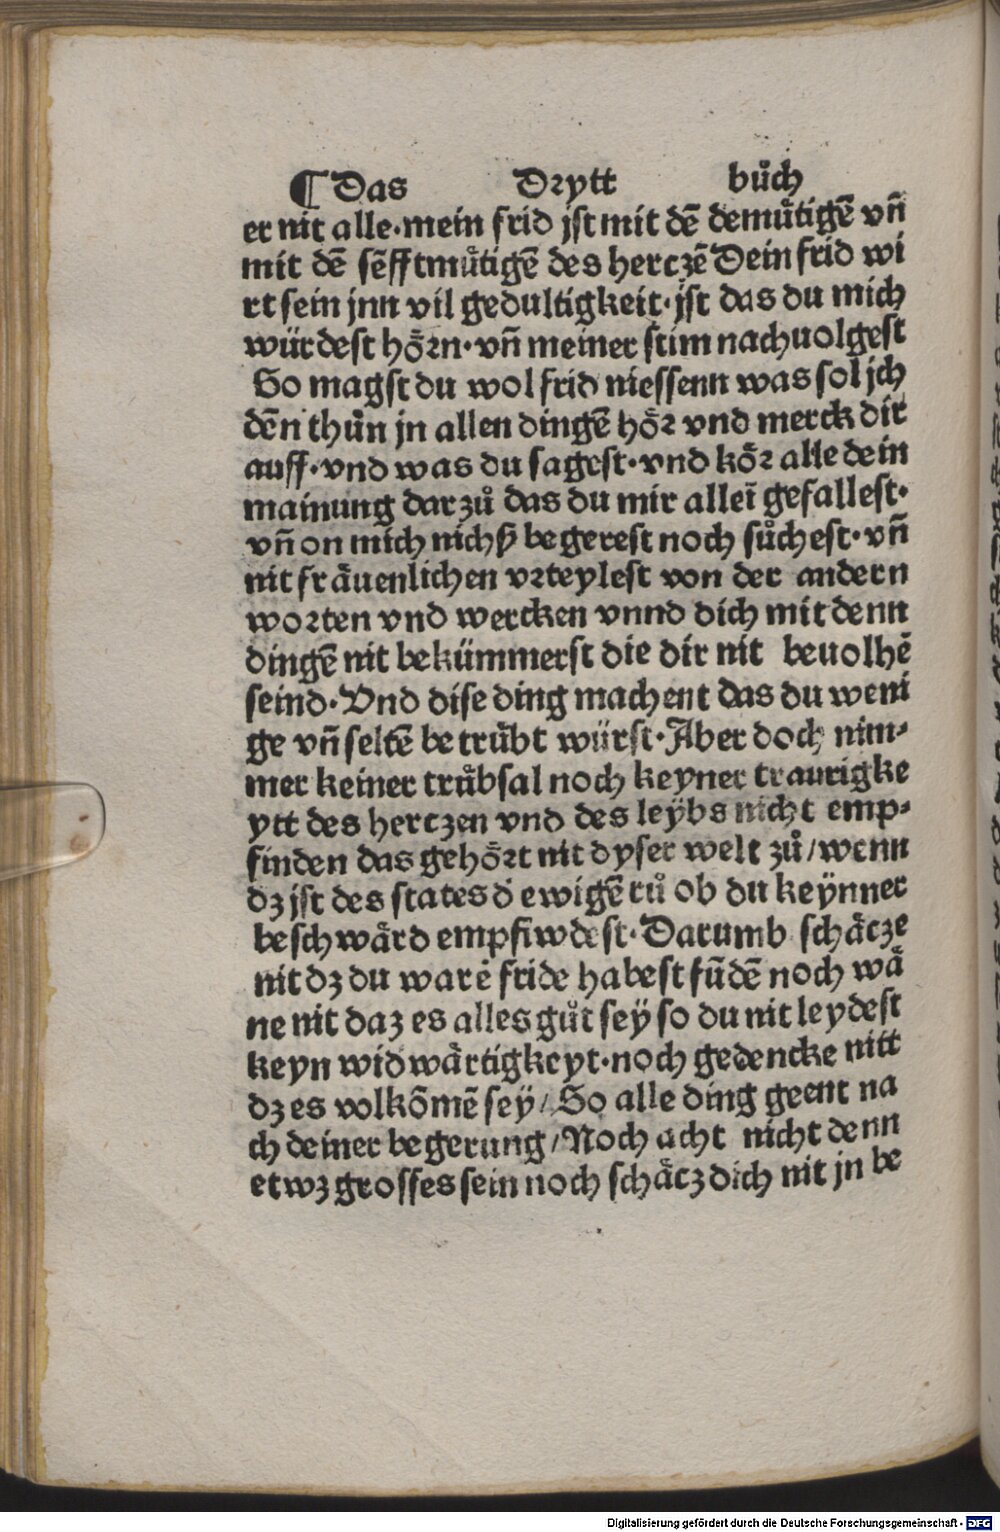 ¶ Das Drytt bůch
er nit alle·mein frid jst mit dē demuͤtigē vn̄
mit dē sēfftmuͤtigē des herczē Dein frid wi
rt sein jnn vil gedultigkeit·jst das du mich
würdest hoͤrn·vn̄ meiner stim nachuolgest
So magst du wol frid niessenn was sol jch
dēn thůn jn allen dingē hoͤr vnd merck dir
auff·vnd was du sagest·vnd koͤr alle dein
mainung darzů das du mir alleī gefallest·
vn̄ on mich nichß begerest noch sůchest·vn̄
nit fräuenlichen vrteylest von der andern
worten vnd wercken vnnd dich mit denn
dingē nit bekümmerst die dir nit beuolhē
seind·Vnd dise ding machent das du weni
ge vn̄ seltē betruͤbt würst·Aber doch nim-
mer keiner truͤbsal noch keyner traurigke
ytt des herczen vnd des leÿbs nicht emp-
finden das gehoͤrt nit dyser welt zů/wenn
dz jst des states d̕ ewigē rů ob du keÿnner
beschwaͤrd empfiwdest·Darumb schaͤcze
nit dz du warē fride habest fūdē noch waͤ
ne nit daz es alles gůt seÿ so du nit leydest
keyn widwaͤrtigkeyt·noch gedencke nitt
dz es volkōmē seÿ/So alle ding geent na
ch deiner begerung/Noch acht nicht denn
etwz grosses sein noch schaͤcz dich nit jn be
Digitalisierung gefördert durch die Deutsche Forschungsgemeinschaft - DFG